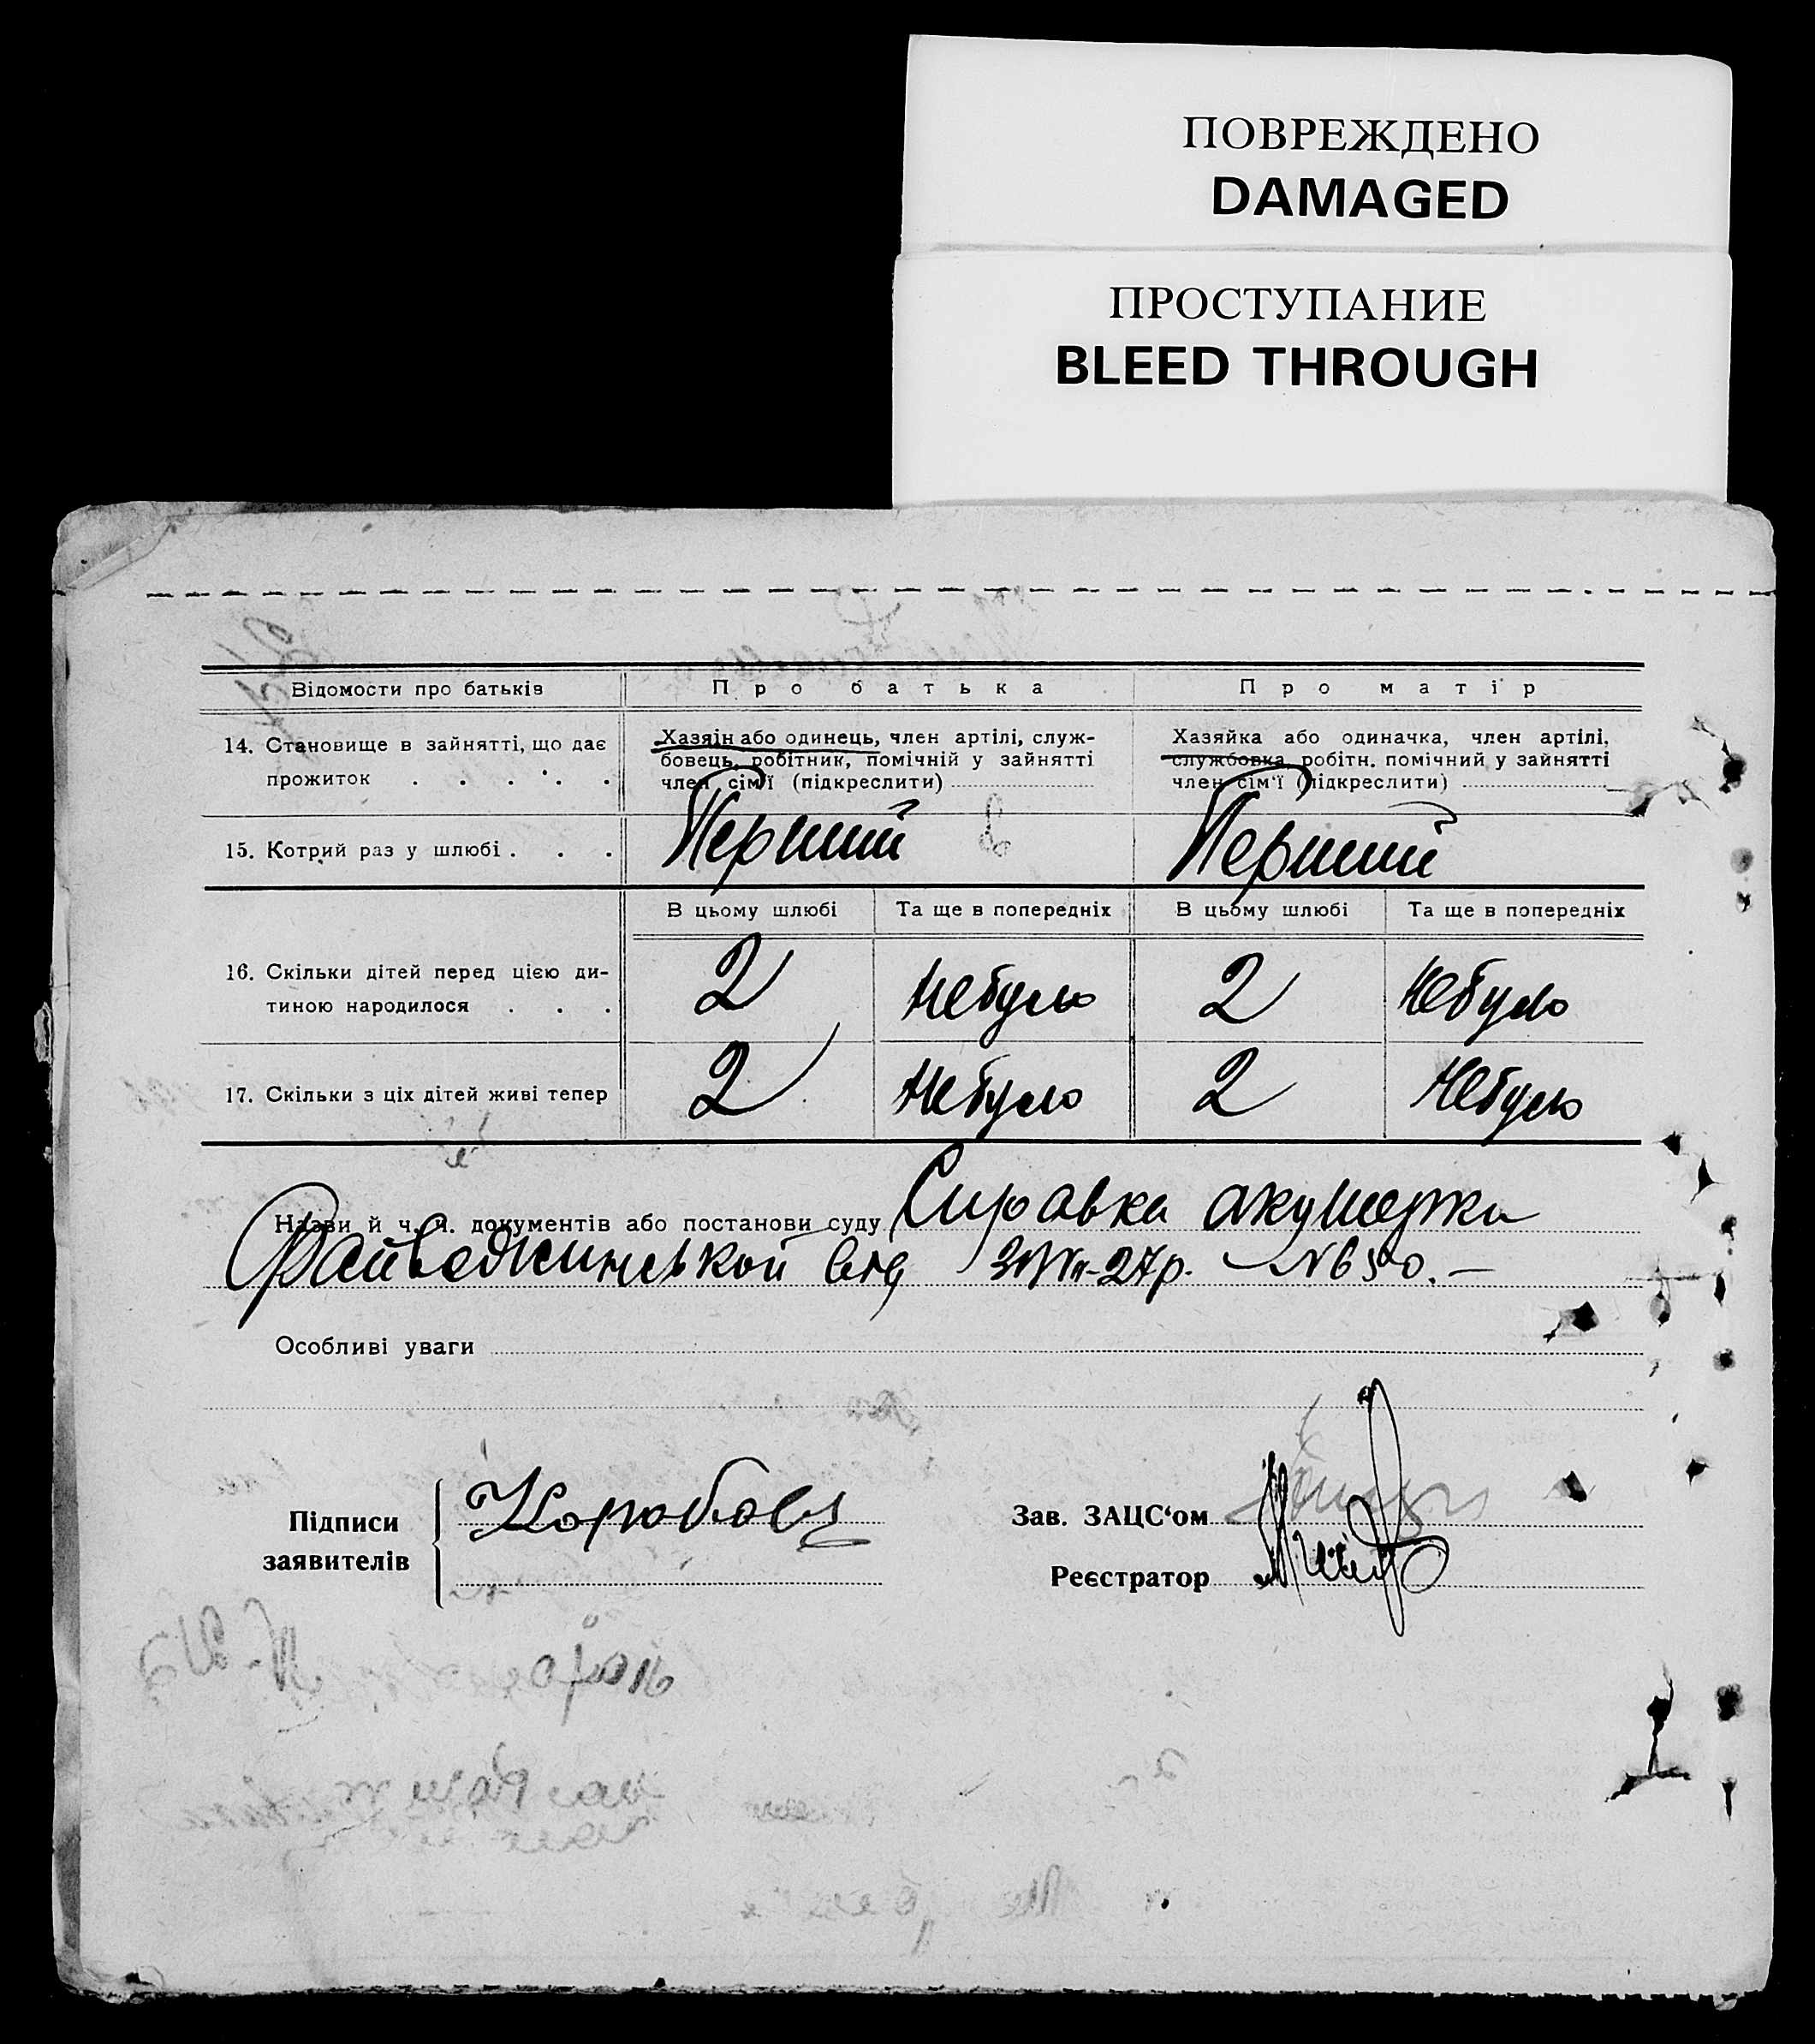 ПОВРЕЖДЕНО
DAMAGED
ПРОСТУПАНИЕ
BLEED THROUGH
Відомости про батьків Про батька Про матір
14. Становище в зайнятті, що дає
прожиток . . . . .
Хазяїн або одинець, член артілі, служ-
бовець, робітник, помічній у зайнятті
член сім'ї (підкреслити)
Хазяйка або одиначка, член артілі,
службовка робітн. помічний у зайнятті
член сім'ї (підкреслити)
15. Котрий раз у шлюбі . . . Перший Перший
В цьому шлюбі Та ще в попередніх В цьому шлюбі Та ще в попередніх
16. Скільки дітей перед цією ди-
тиною народилося . . . 2 небуло 2 небуло
17. Скільки з ціх дітей живі тепер 2 небуло 2 небуло
Назви й ч. ч. документів або постанови суду Справка акушерки
від 27р. №
Особливі уваги
Підписи
заявителів
Зав. ЗАЦС'ом
Реєстратор